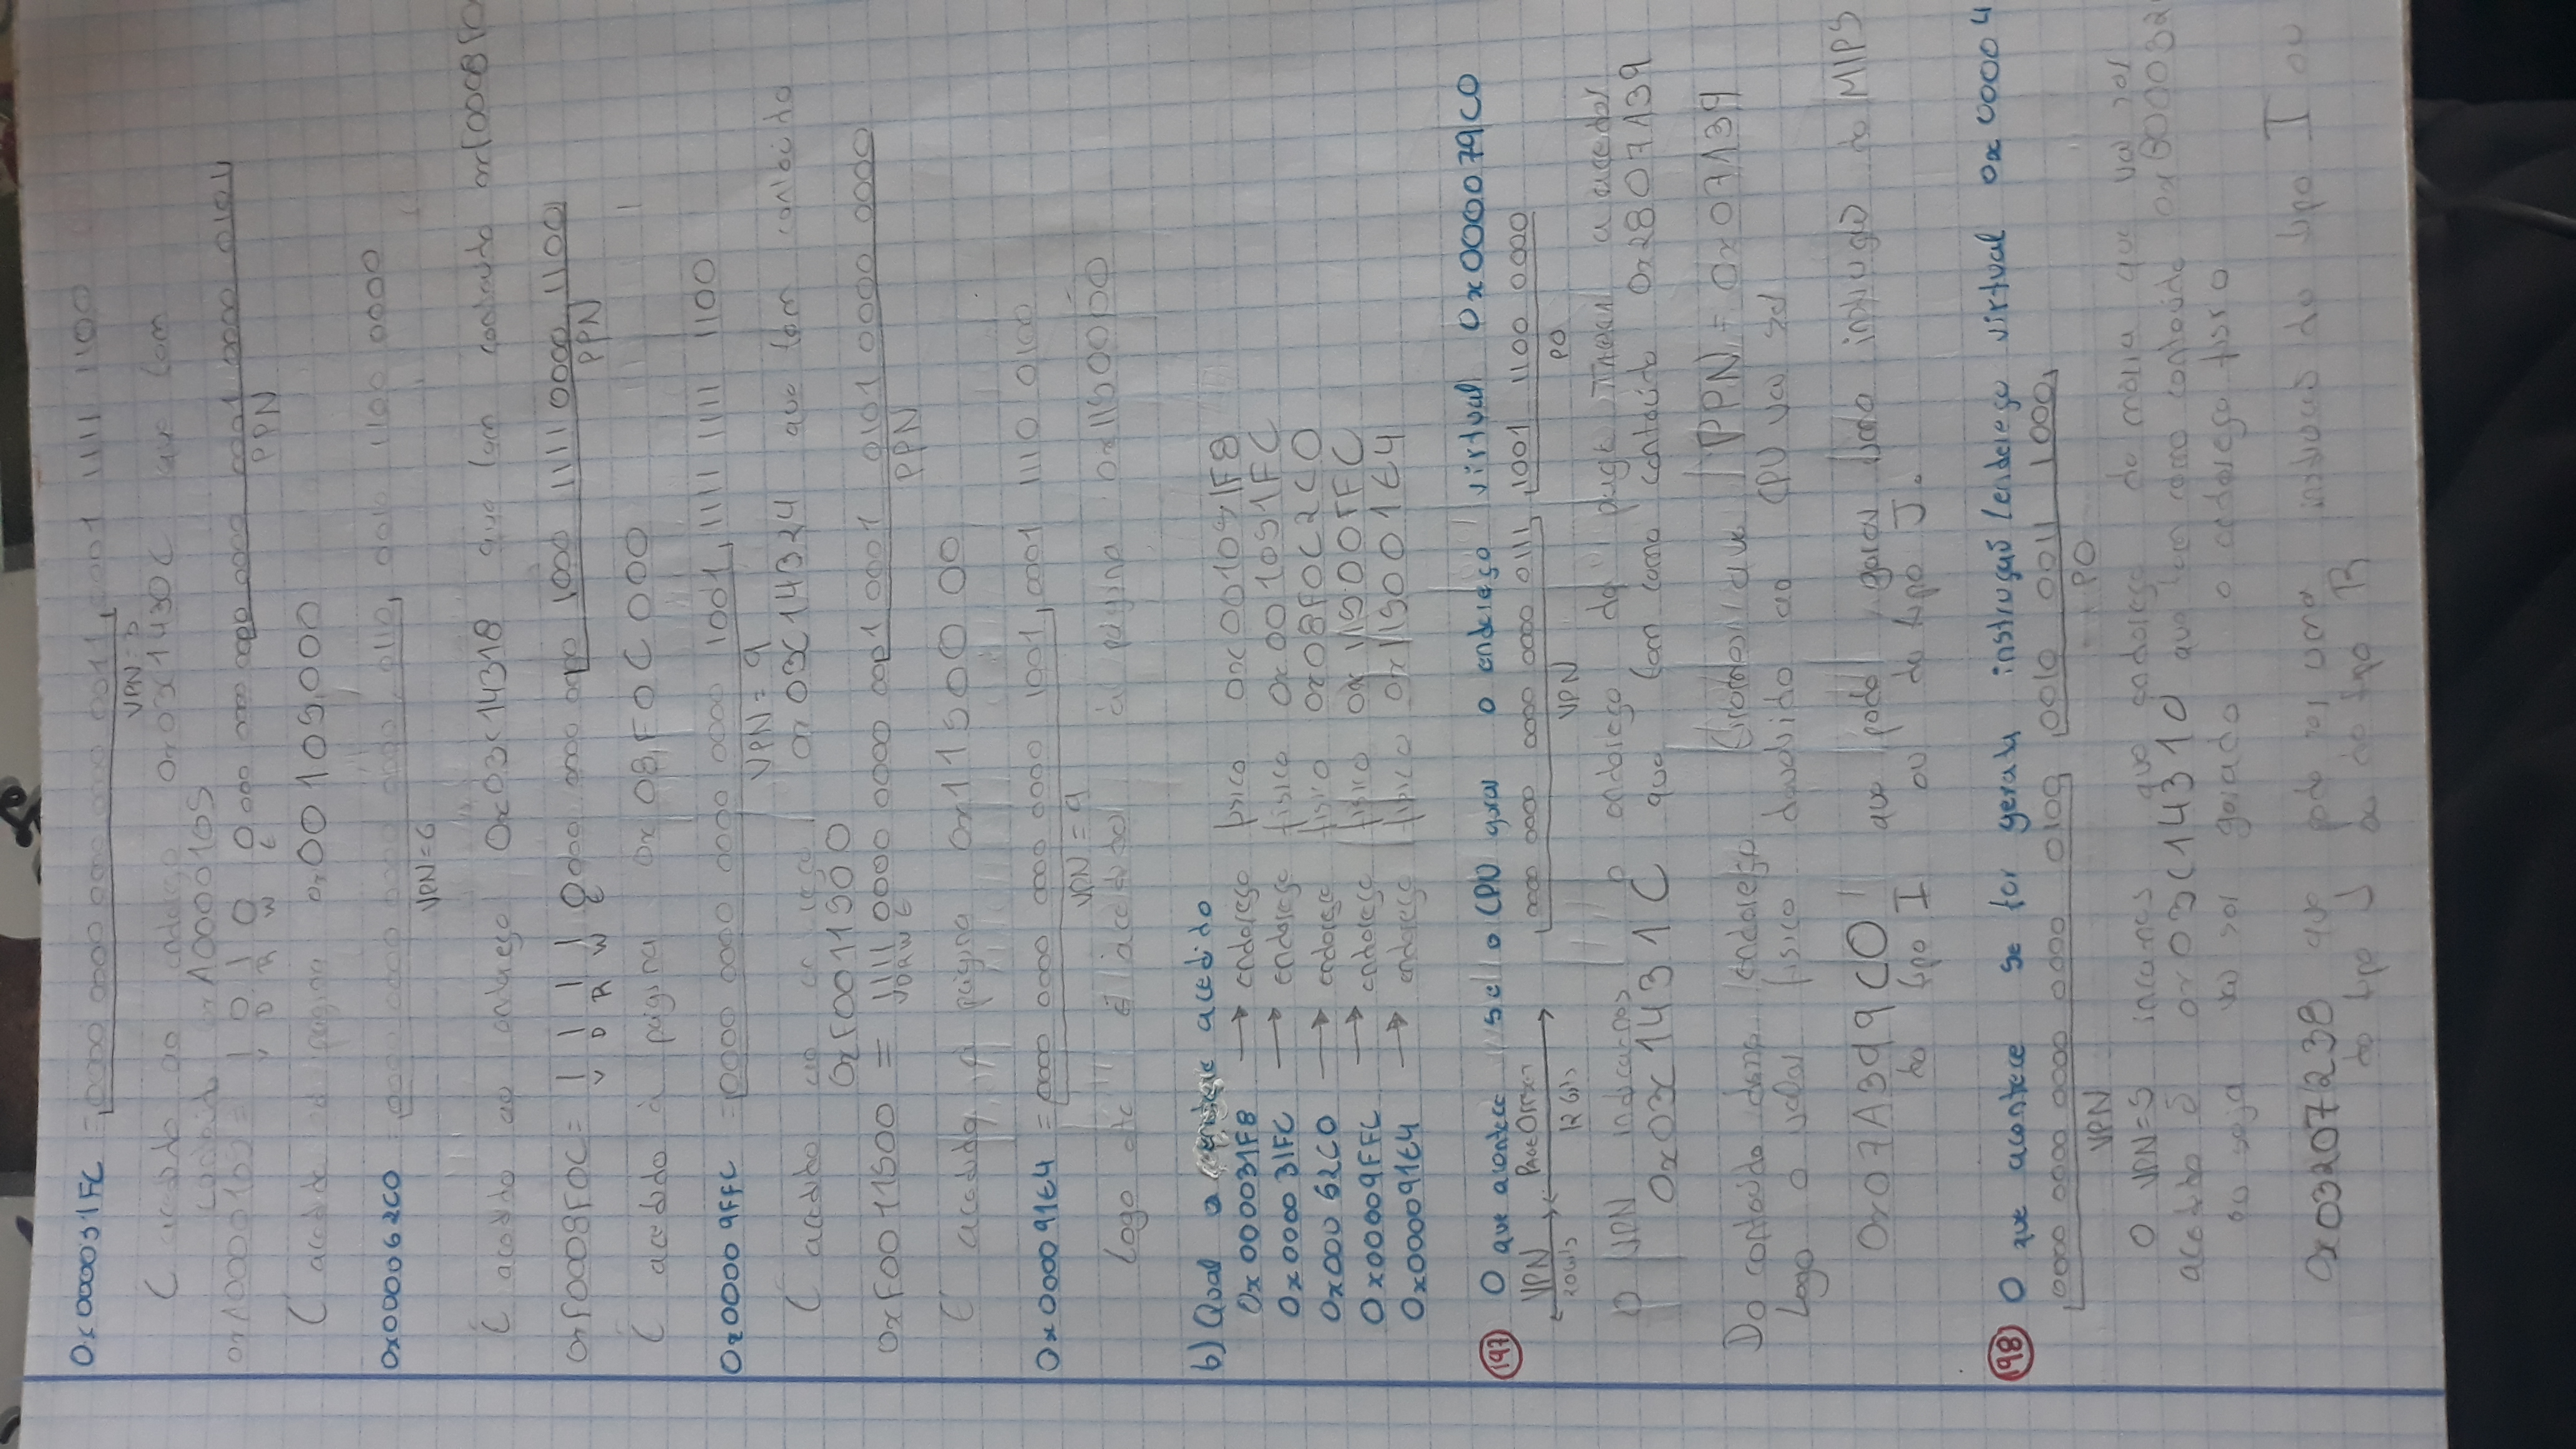 0x000031FC = 0000 0000 0000 0000 0011, 0001 1111 1100
VPN = 3
É acedido ao endereço 0x03C1430C que tem
conteúdo 0xA0000105
0xA0000105 = 1 0 1 0 0000 0000 0000 0000 0001 0000 0101
V D R W E PPN
É acedida à página 0x00105000
0x000062C0 = 0000 0000 0000 0000 0110, 0010 1100 0000
VPN = 6
É acedido ao endereço 0x03C14318 que tem conteúdo 0xF0008F0
0xF0008F0C = 1 1 1 1 0000 0000 0000 1000 1111 0000 1100
V D R W E PPN
É acedido à página 0x08F0C000
0x00009FFC = 0000 0000 0000 0000 1001, 1111 1111 1100
VPN = 9
É acedido ao 0x03C14324 que tem conteúdo
0xF0011500
0xF0011500 = 1111 0000 0000 0001 0001 0101 0000 0000
VDRW E PPN
É acedida à página 0x1150000
0x000091E4 = 0000 0000 0000 0000 1001, 0001 1110 0100
VPN = 9
Logo é acedido à página 0x1150000
b) Qual o acedido
0x000031F8 → endereço físico 0x001051F8
0x000031FC → endereço físico 0x001051FC
0x00062C0 → endereço físico 0x08F0C2C0
0x00009FFC → endereço físico 0x11500FFC
0x000091E4 → endereço físico 0x115001E4
197 O que acontece se o CPU gerar o endereço virtual 0x000079C0
VPN Page Offset 0000 0000 0000 0000 0111, 1001 1100 0000
20bits 12bits VPN PO
O VPN indicanos o endereço da page a aceder
0x03C1431C que tem como conteúdo 0x2807A39
Do conteúdo endereço que PPN = 0x07A39
Logo o valor físico devolvido ao CPU vai ser
0x07A399C0 que pode gerar uma instrução do MIPS
do tipo I ou do tipo J.
198 O que acontece se for gerada instruçao/endereço virtual 0x00004
0000 0000 0000 0000 0100, 0010 0011 1000
VPN PO
O VPN=5 que endereço de que vai ser
acedido é 0x03C14310 que tem como conteúdo
ou seja vai ser gerado o endereço físico
0x03207238 que pode ser uma instrução do tipo I ou
do tipo J ou do tipo R